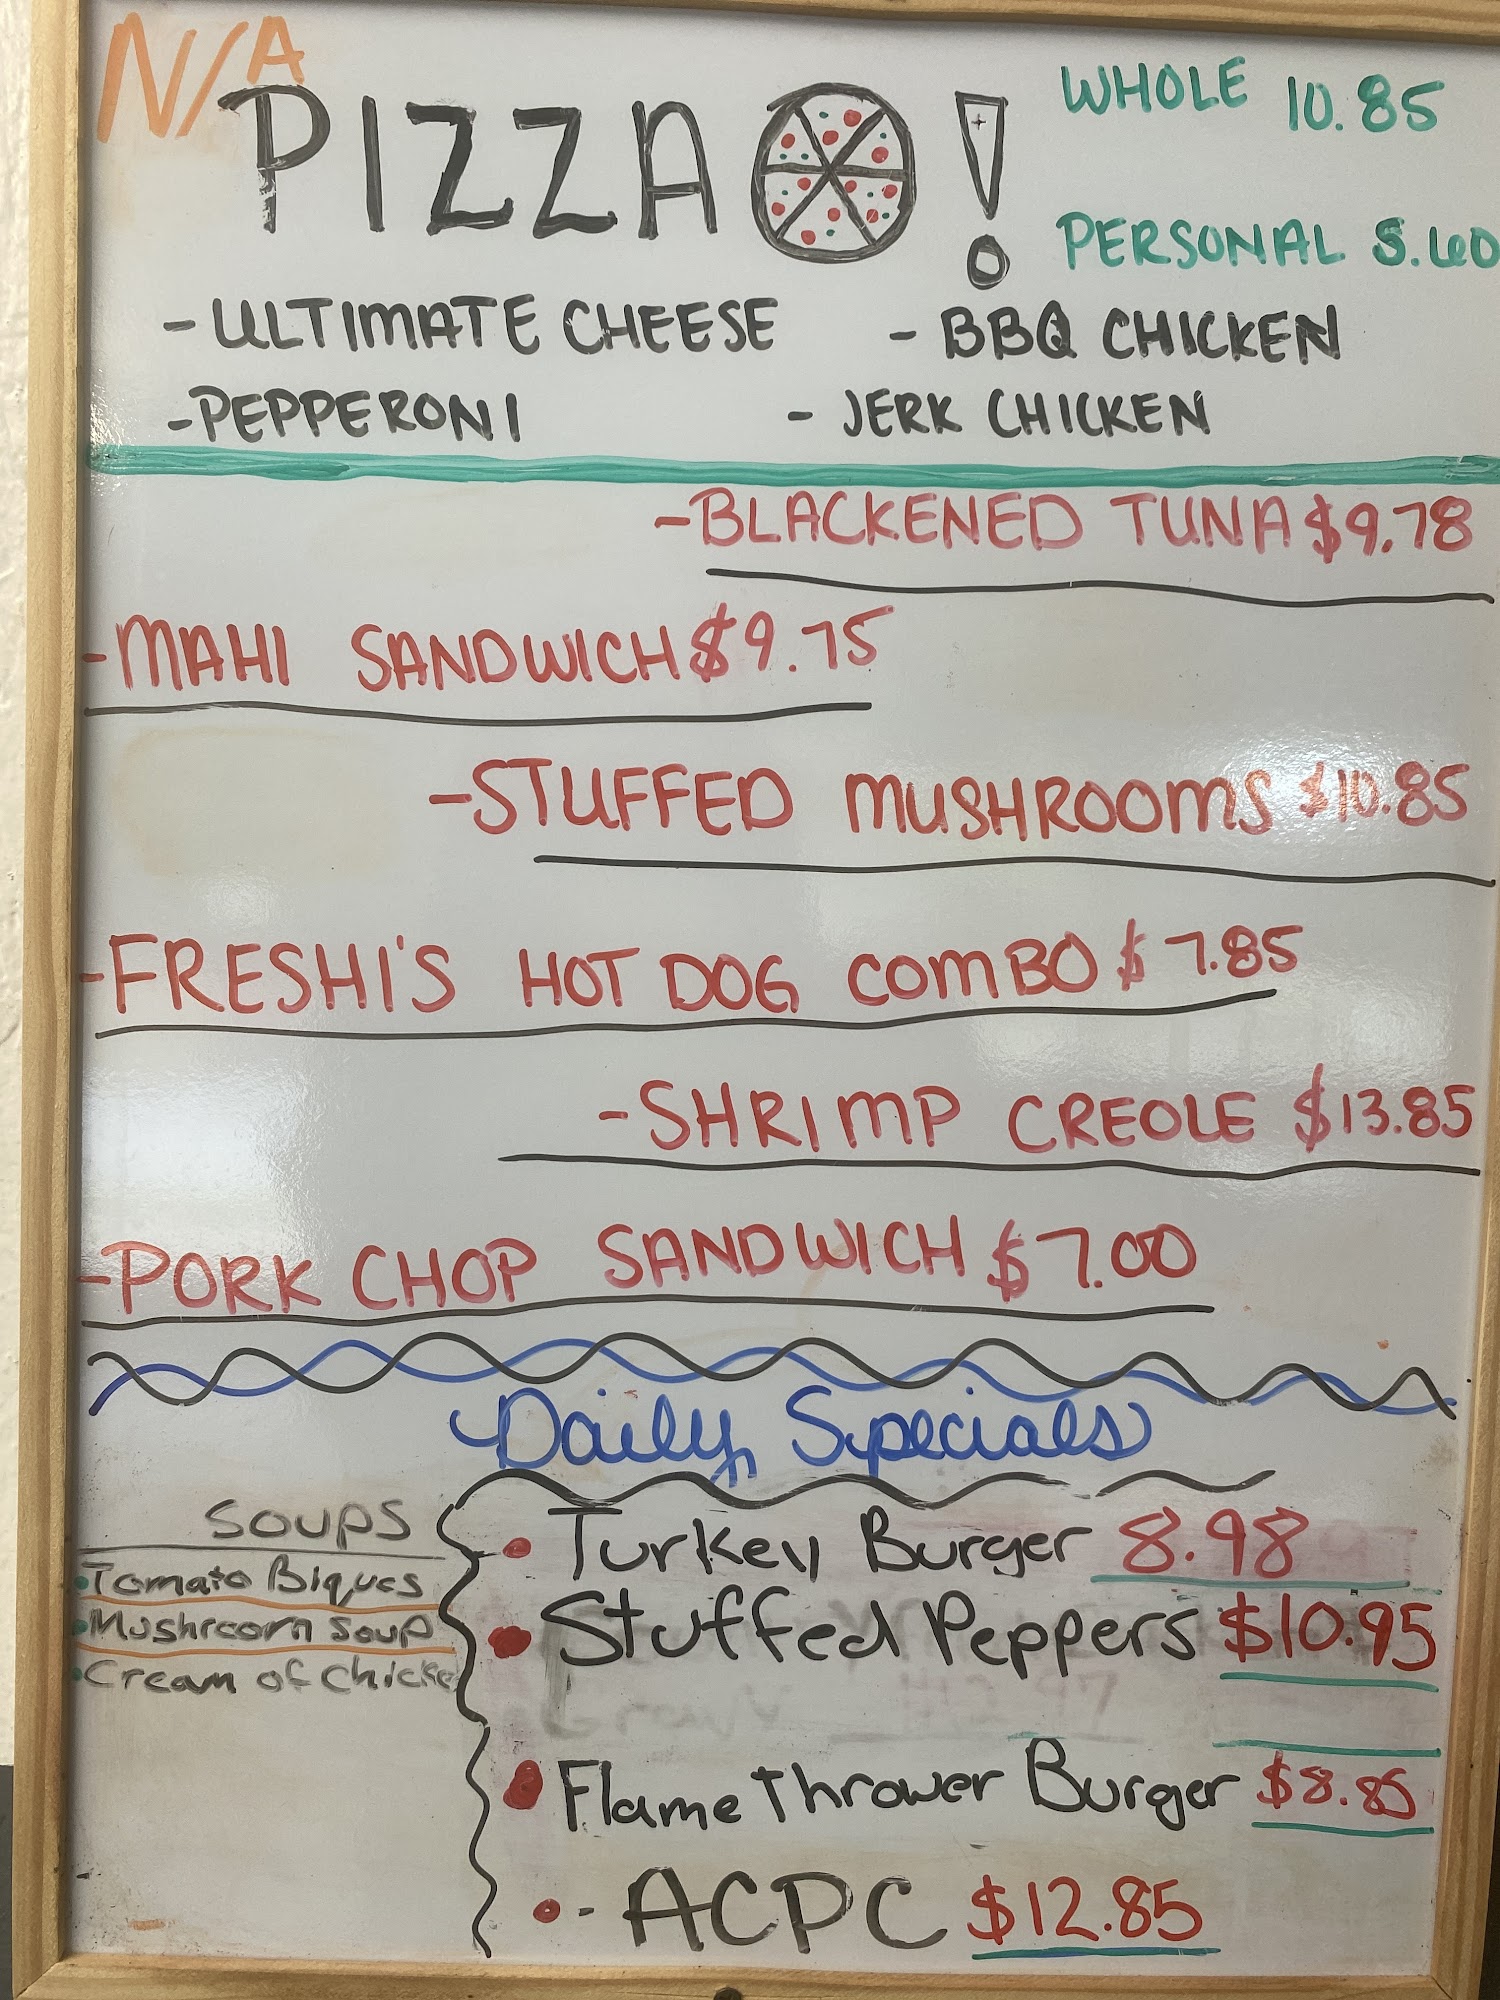 N/A
PIZZA!
WHOLE 10.85
PERSONAL 5.60
- ULTIMATE CHEESE
- BBQ CHICKEN
- PEPPERONI
- JERK CHICKEN
- BLACKENED TUNA $9.78
- MAHI SANDWICH $9.75
- STUFFED MUSHROOMS $10.85
- FRESHI'S HOT DOG COMBO $7.85
- SHRIMP CREOLE $13.85
- PORK CHOP SANDWICH $7.00
Daily Specials
SOUPS
• Tomato Biques
• Mushroom Soup
• Cream of Chicke
• Turkey Burger 8.98
• Stuffed Peppers $10.95
• Flame Thrower Burger $8.85
• - ACPC $12.85